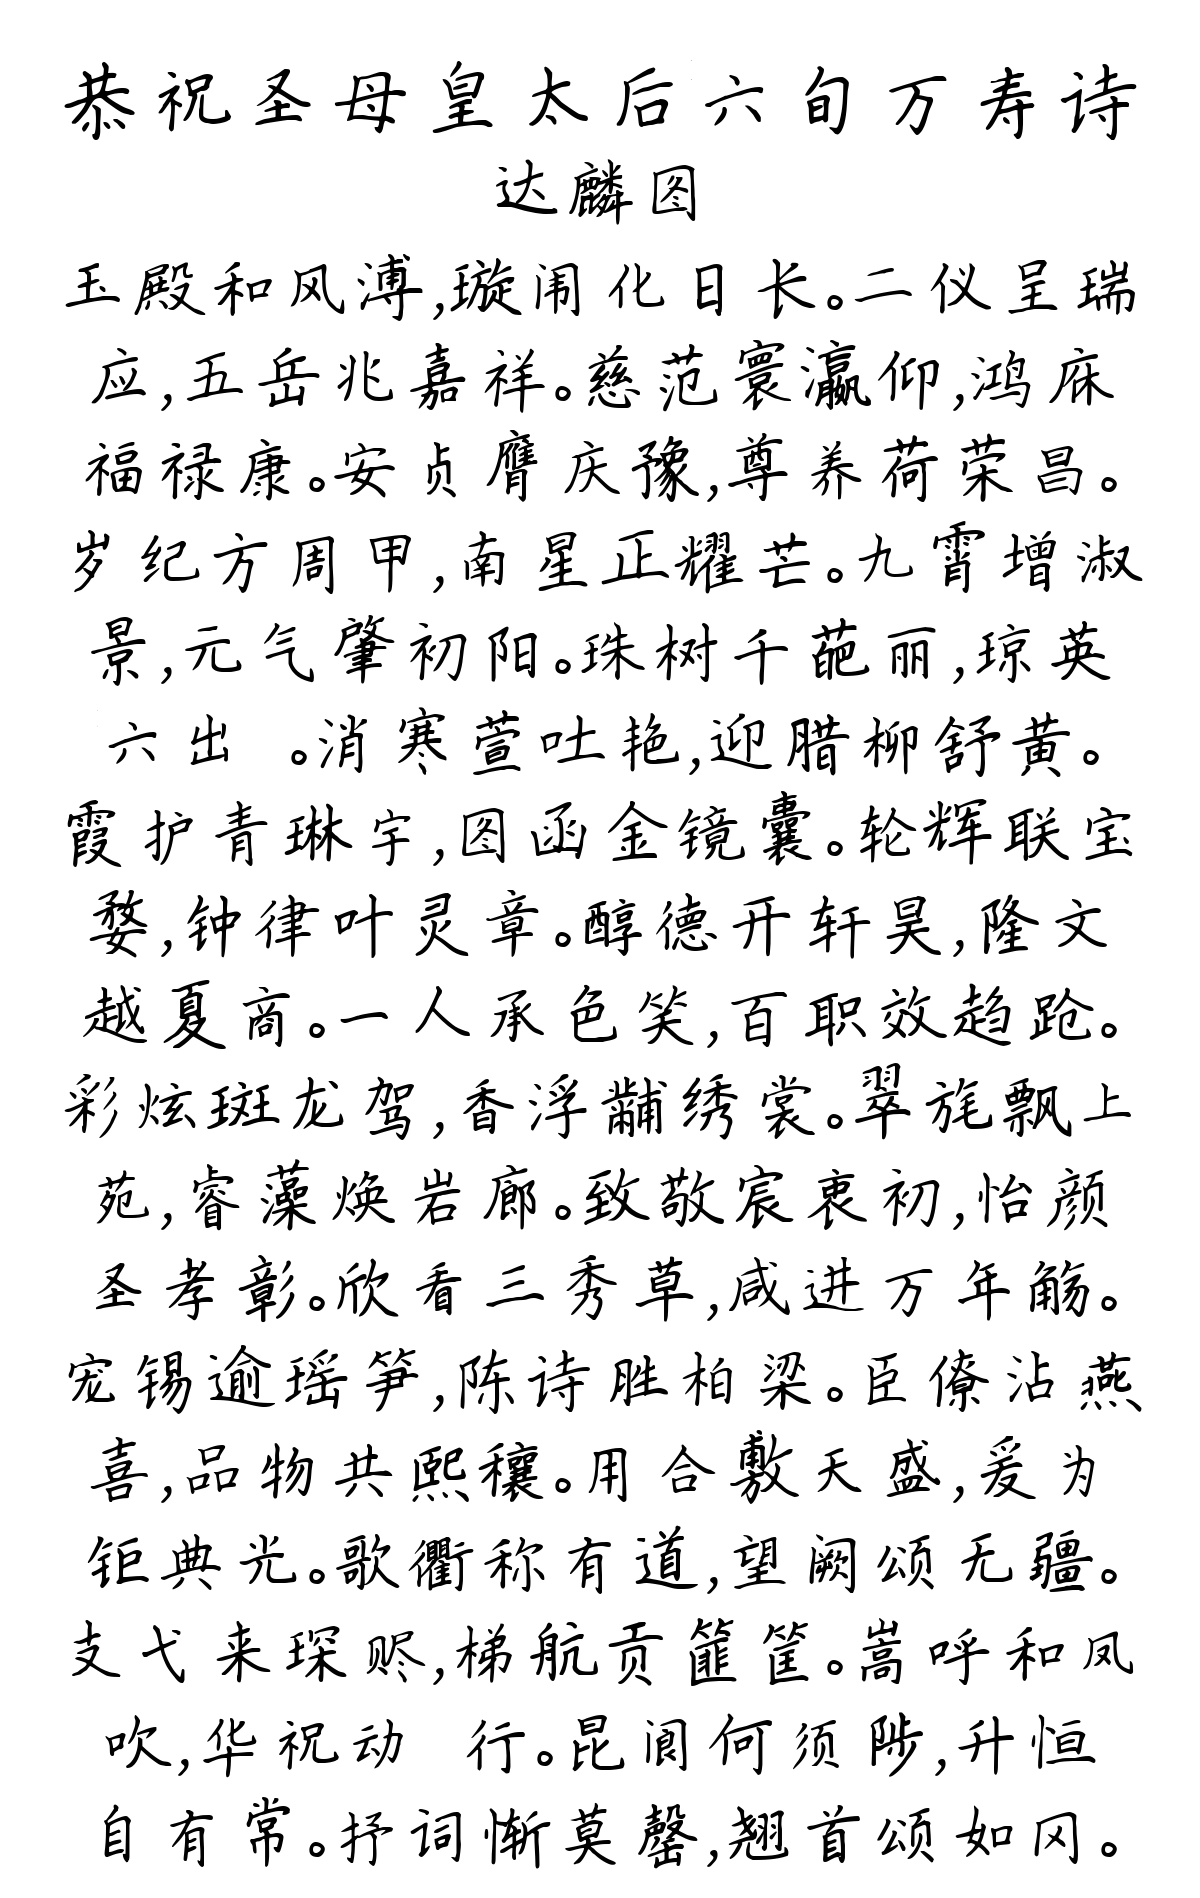 恭祝圣母皇太后六旬万寿诗
达麟图
玉殿和风溥,璇闱化日长。二仪呈瑞
应,五岳兆嘉祥。慈范寰瀛仰,鸿庥
福禄康。安贞膺庆豫,尊养荷荣昌。
岁纪方周甲,南星正耀芒。九霄增淑
景,元气肇初阳。珠树千葩丽,琼英
六出 。消寒萱吐艳,迎腊柳舒黄。
霞护青琳宇,图函金镜囊。轮辉联宝
婺,钟律叶灵章。醇德开轩昊,隆文
越夏商。一人承色笑,百职效趋跄。
彩炫斑龙驾,香浮黼绣裳。翠旄飘上
苑,睿藻焕岩廊。致敬宸衷初,怡颜
圣孝彰。欣看三秀草,咸进万年觞。
宠锡逾瑶笋,陈诗胜柏梁。臣僚沾燕
喜,品物共熙穰。用合敷天盛,爰为
钜典光。歌衢称有道,望阙颂无疆。
支弋来琛赆,梯航贡篚筐。嵩呼和凤
吹,华祝动 行。昆阆何须陟,升恒
自有常。抒词惭莫罄,翘首颂如冈。